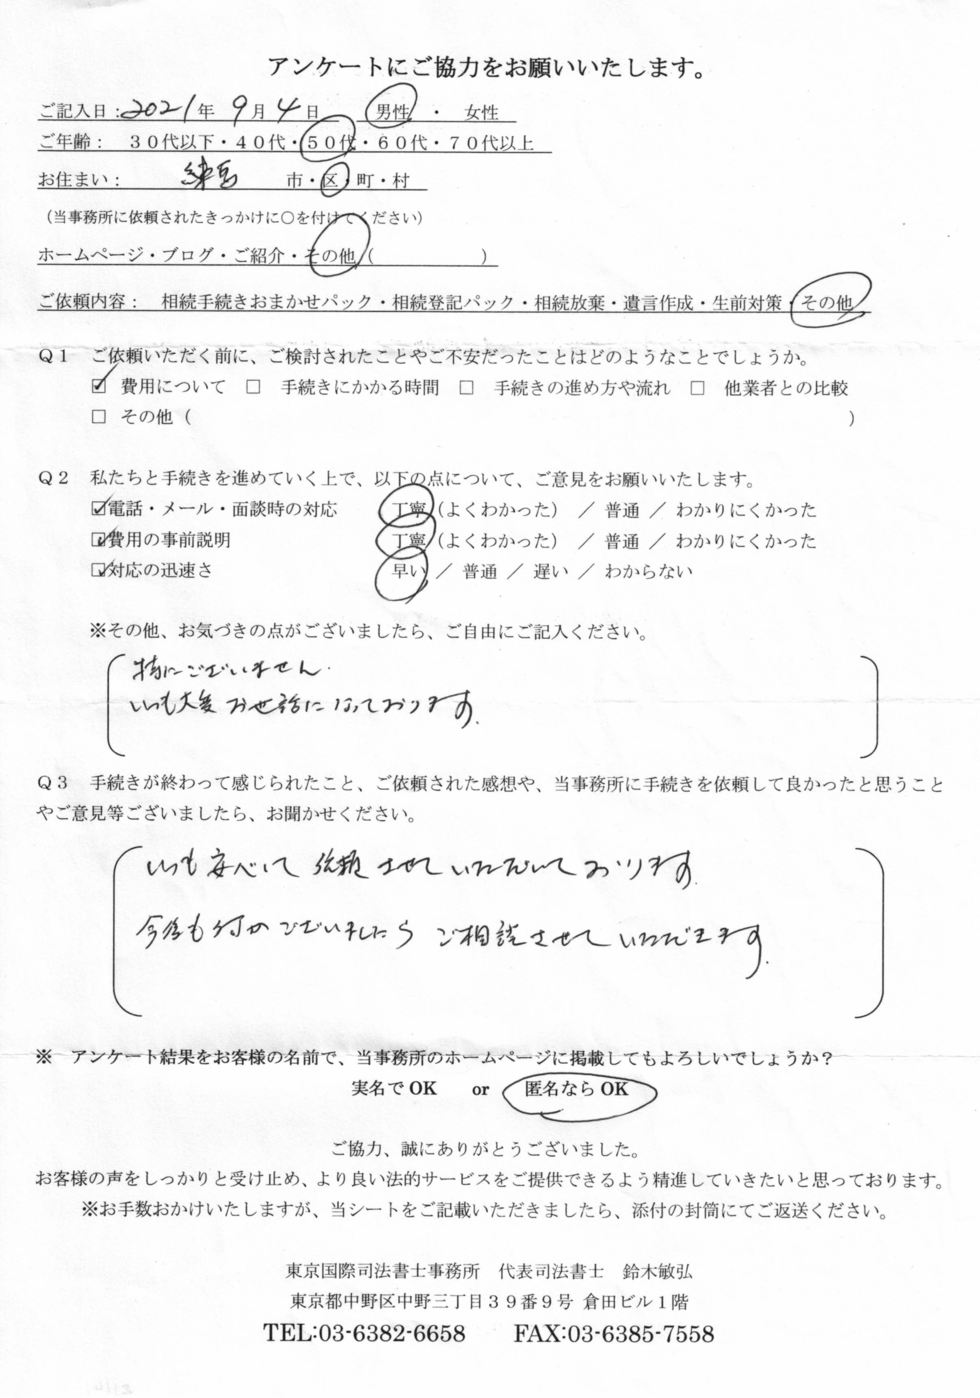 アンケートにご協力をお願いいたします。
ご記入日：2021年 9月 4日 男性 ・ 女性
ご年齢： 30代以下・40代・50代・60代・70代以上
お住まい： 練馬 市・区・町・村
（当事務所に依頼されたきっかけに〇を付けてください）
ホームページ・ブログ・ご紹介・その他（ ）
ご依頼内容： 相続手続きおまかせパック・相続登記パック・相続放棄・遺言作成・生前対策・その他
Q1 ご依頼いただく前に、ご検討されたことやご不安だったことはどのようなことでしょうか。
☑ 費用について □ 手続きにかかる時間 □ 手続きの進め方や流れ □ 他業者との比較
□ その他（ ）
Q2 私たちと手続きを進めていく上で、以下の点について、ご意見をお願いいたします。
☑電話・メール・面談時の対応 丁寧（よくわかった） ／ 普通 ／ わかりにくかった
☑費用の事前説明 丁寧（よくわかった） ／ 普通 ／ わかりにくかった
☑対応の迅速さ 早い ／ 普通 ／ 遅い ／ わからない
※その他、お気づきの点がございましたら、ご自由にご記入ください。
特にございません.
いつも大変お世話になっております.
Q3 手続きが終わって感じられたこと、ご依頼された感想や、当事務所に手続きを依頼して良かったと思うこと
やご意見等ございましたら、お聞かせください。
いつも安心して依頼させていただいております.
今後も何かございましたらご相談させていただきます.
※ アンケート結果をお客様の名前で、当事務所のホームページに掲載してもよろしいでしょうか？
実名でOK or 匿名ならOK
ご協力、誠にありがとうございました。
お客様の声をしっかりと受け止め、より良い法的サービスをご提供できるよう精進していきたいと思っております。
※お手数おかけいたしますが、当シートをご記載いただきましたら、添付の封筒にてご返送ください。
東京国際司法書士事務所 代表司法書士 鈴木敏弘
東京都中野区中野三丁目39番9号 倉田ビル1階
TEL:03-6382-6658 FAX:03-6385-7558